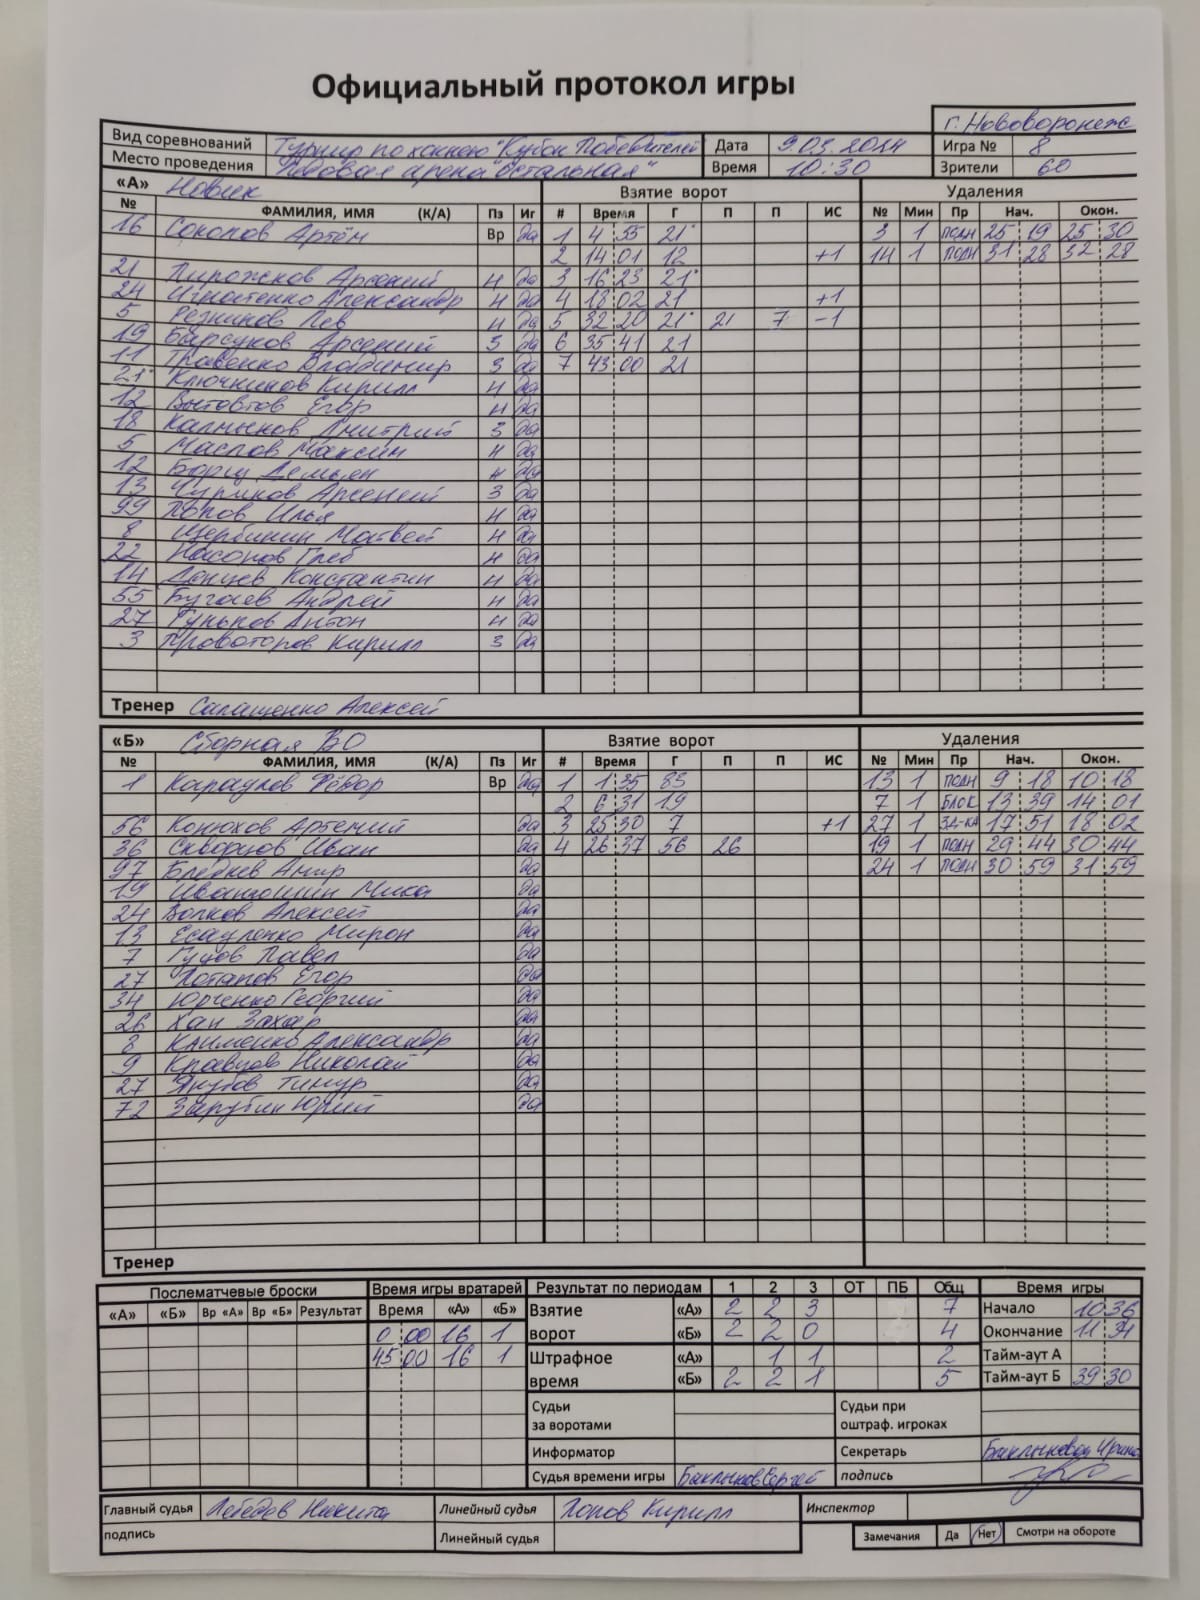 Официальный протокол игры
г. Нововоронеж
Вид соревнований Турнир по хоккею "Кубок Победителей" Дата 9.03.2024 Игра № 8
Место проведения "Ледовая арена "Остальная" Время 10:30 Зрители 60
«А» Новик Взятие ворот Удаления
№ ФАМИЛИЯ, ИМЯ (К/А) Пз Иг # Время Г П П ИС № Мин Пр Нач. Окон.
16 Соколов Артём Вр да 1 4 55 21* 3 1 подн 25 19 25 30
2 14 01 12 +1 14 1 подн 31 28 32 28
21 Пирожков Арсений н да 3 16 23 21*
24 Игнатенко Александр н да 4 18 02 21 +1
5 Резников Лев н да 5 32 20 21* 21 7 -1
19 Барсуков Арсений з да 6 35 41 21
11 Травенко Владимир з да 7 43 00 21
21* Ключников Кирилл н да
12 Вытовтов Егор н да
18 Калмыков Дмитрий з да
5 Маслов Максим н да
12 Борщ Демьян н да
13 Чуриков Арсений з да
99 Попов Илья н да
8 Щербинин Матвей н да
22 Насонов Глеб н да
14 Донцев Константин н да
55 Бугаев Андрей н да
27 Гульков Антон н да
3 Провоторов Кирилл з да
Тренер Сапащенко Алексей
«Б» Сборная ВО Взятие ворот Удаления
№ ФАМИЛИЯ, ИМЯ (К/А) Пз Иг # Время Г П П ИС № Мин Пр Нач. Окон.
1 Караулов Фёдор Вр да 1 1 35 83 13 1 подн 9 18 10 18
2 6 31 19 7 1 БЛОК 13 39 14 01
56 Конюхов Артемий да 3 25 30 7 +1 27 1 ЗД-КА 17 51 18 02
36 Скворцов Иван да 4 26 37 56 26 19 1 подн 29 44 30 44
97 Бледнев Амир да 24 1 подн 30 59 31 59
19 Иванюшин Мика да
24 Волков Алексей да
13 Есауленко Мирон да
7 Гуцов Павел да
27 Потапов Егор да
34 Юрченко Георгий да
26 Хан Захар да
8 Клименко Александр да
9 Кравцов Николай да
27 Якубов Тимур да
72 Зарубин Юрий да
Тренер
Послематчевые броски Время игры вратарей Результат по периодам 1 2 3 ОТ ПБ Общ Время игры
«А» «Б» Вр «А» Вр «Б» Результат Время «А» «Б» Взятие ворот «А» 2 2 3 7 Начало 10 36
0 00 16 1 «Б» 2 2 0 4 Окончание 11 31
45 00 16 1 Штрафное время «А» 1 1 2 Тайм-аут А
«Б» 2 2 1 5 Тайм-аут Б 39 30
Судьи за воротами Судьи при оштраф. игроках
Информатор Секретарь Баклыкова Ирина
Судья времени игры Баклыков Сергей подпись
Главный судья Лебедев Никита Линейный судья Попов Кирилл Инспектор
подпись Линейный судья Замечания Да Нет Смотри на обороте